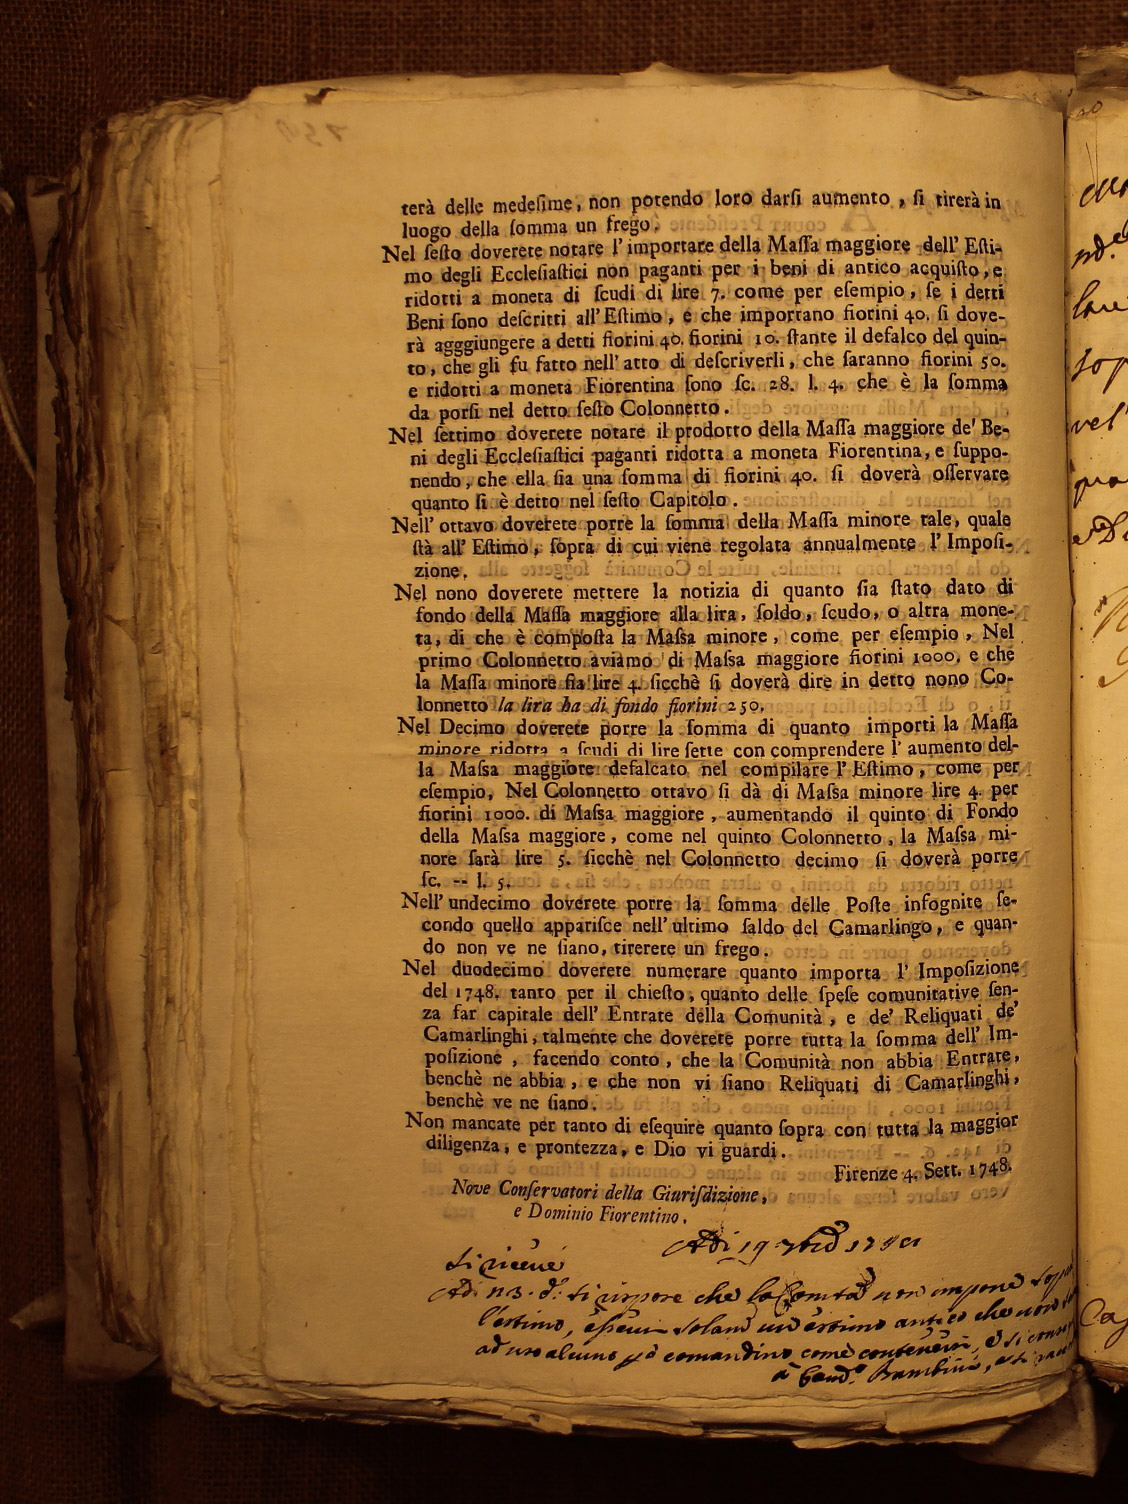 terà delle medeſime, non potendo loro darſi aumento, ſi tirerà in
luogo della ſomma un frego.
Nel ſeſto doverete notare l' importare della Maſſa maggiore dell' Eſti-
mo degli Eccleſiaſtici non paganti per i beni di antico acquiſto, e
ridotti a moneta di ſcudi di lire 7. come per eſempio, ſe i detti
Beni ſono deſcritti all' Eſtimo, e che importano fiorini 40. ſi dove-
rà agggiungere a detti fiorini 40. fiorini 10. ſtante il defalco del quin-
to, che gli fu fatto nell' atto di deſcriverli, che ſaranno fiorini 50.
e ridotti a moneta Fiorentina ſono ſc. 28. l. 4. che è la ſomma
da porſi nel detto ſeſto Colonnetto.
Nel ſettimo doverete notare il prodotto della Maſſa maggiore de' Be-
ni degli Eccleſiaſtici paganti ridotta a moneta Fiorentina, e ſuppo-
nendo, che ella ſia una ſomma di fiorini 40. ſi doverà oſſervare
quanto ſi è detto nel ſeſto Capitolo.
Nell' ottavo doverete porre la ſomma della Maſſa minore tale, quale
ſtà all' Eſtimo, ſopra di cui viene regolata annualmente l' Impoſi-
zione.
Nel nono doverete mettere la notizia di quanto ſia ſtato dato di
fondo della Maſſa maggiore alla lira, ſoldo, ſcudo, o altra mone-
ta, di che è compoſta la Maſsa minore, come per eſempio, Nel
primo Colonnetto aviamo di Maſsa maggiore fiorini 1000. e che
la Maſſa minore ſia lire 4. ſicchè ſi doverà dire in detto nono Co-
lonnetto la lira ha di fondo fiorini 250.
Nel Decimo doverete porre la ſomma di quanto importi la Maſſa
minore ridotta a ſcudi di lire ſette con comprendere l' aumento del-
la Maſsa maggiore defalcato nel compilare l' Eſtimo, come per
eſempio, Nel Colonnetto ottavo ſi dà di Maſsa minore lire 4. per
fiorini 1000. di Maſsa maggiore, aumentando il quinto di Fondo
della Maſsa maggiore, come nel quinto Colonnetto, la Maſsa mi-
nore ſarà lire 5. ſicchè nel Colonnetto decimo ſi doverà porre
ſc. -- l. 5.
Nell' undecimo doverete porre la ſomma delle Poſte inſognite ſe-
condo quello appariſce nell' ultimo ſaldo del Camarlingo, e quan-
do non ve ne ſiano, tirerete un frego.
Nel duodecimo doverete numerare quanto importa l' Impoſizione
del 1748. tanto per il chieſto, quanto delle ſpeſe comunitative ſen-
za far capitale dell' Entrate della Comunità, e de' Reliquati de'
Camarlinghi, talmente che doverete porre tutta la ſomma dell' Im-
poſizione, facendo conto, che la Comunità non abbia Entrate,
benchè ne abbia, e che non vi ſiano Reliquati di Camarlinghi,
benchè ve ne ſiano.
Non mancate per tanto di eſequire quanto ſopra con tutta la maggior
diligenza, e prontezza, e Dio vi guardi.
Firenze 4. Sett. 1748.
Nove Conſervatori della Giuriſdizione,
e Dominio Fiorentino.
Adi 19
che la non impone
l'estimo, estimo antico che non
comandino
à Bambini,